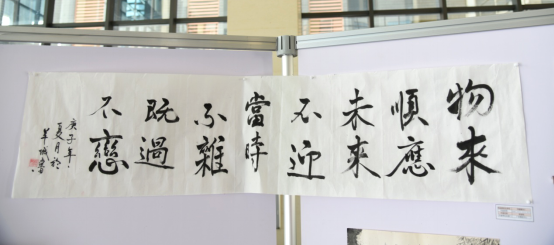 物來
順應
未來
不迎
當時
不雜
既過
不戀
庚子年
夏月於